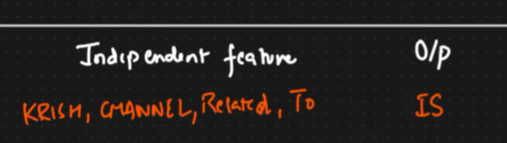 Independent feature O/p
KRISH, CHANNEL, Related, To IS